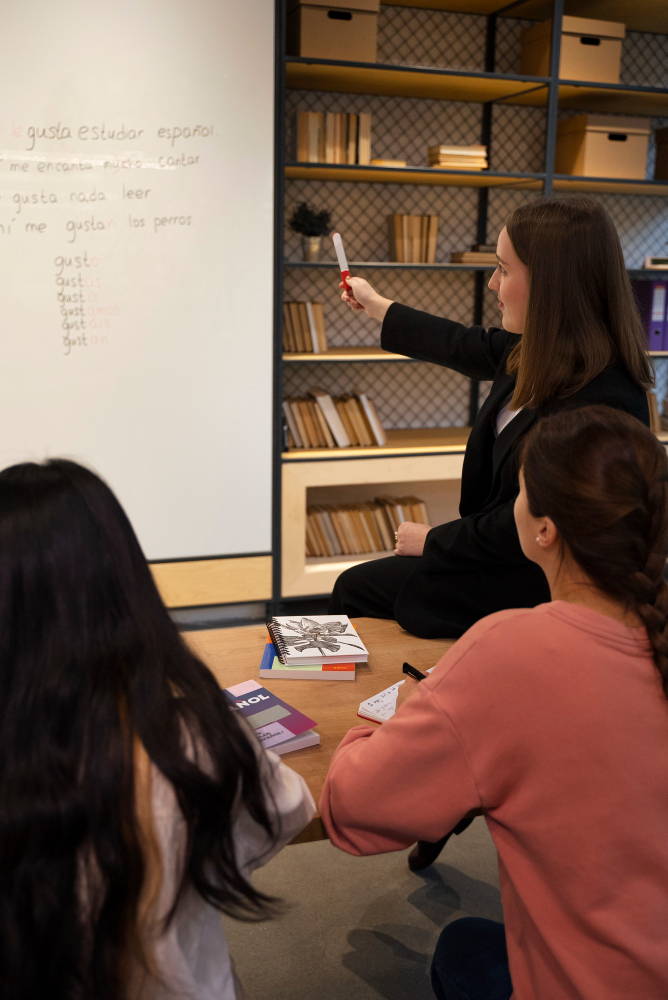 gusta estudiar español.
me encanta mucho cantar
gusta nada leer
mí me gustan los perros
gusto
gustas
gusta
gustamos
gustáis
gustan
NOL